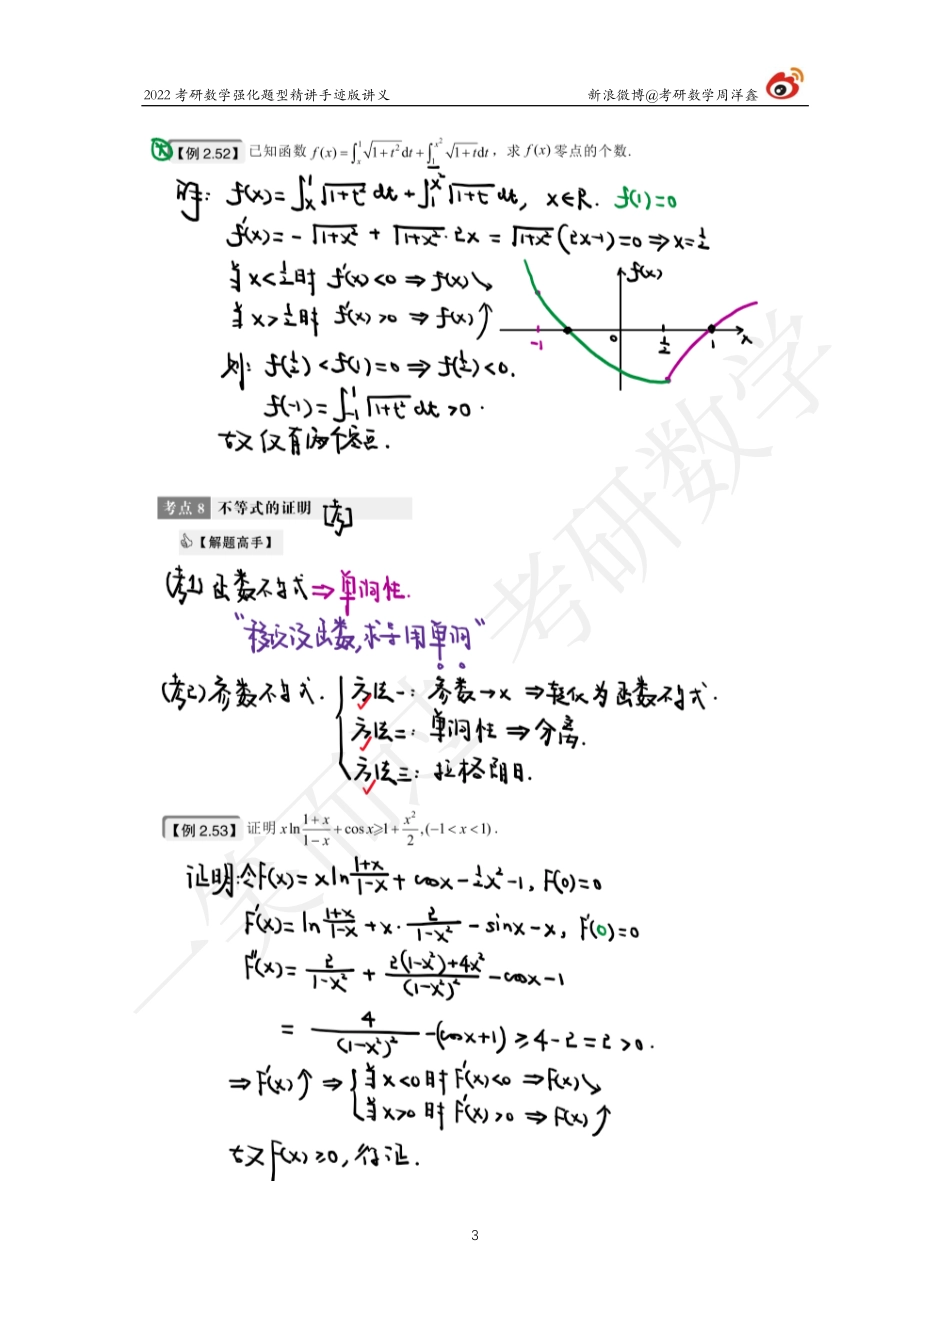 2022 考研数学强化题型精讲手迹版讲义 新浪微博@考研数学周洋鑫
【例 2.52】 已知函数 f(x)=∫_x^1 √(1+t²)dt+∫_1^{x²} √(1+t)dt，求 f(x) 零点的个数.
解: f(x)=∫_x^1 √(1+t²) dt + ∫_1^{x²} √(1+t) dt, x∈R. f(1)=0
f'(x)= -√(1+x²) + √(1+x²)·2x = √(1+x²)(2x-1)=0 ⇒ x=1/2
当 x<1/2时 f'(x)<0 ⇒ f(x)↘
当 x>1/2时 f'(x)>0 ⇒ f(x)↑
f(x)
-1 0 1/2 1 x
则: f(1/2)<f(1)=0 ⇒ f(1/2)<0.
f(-1)=∫_{-1}^1 √(1+t²) dt >0.
故仅有两个零点.
考点 8 不等式的证明 [考]
【解题高手】
(考1) 函数不等式 ⇒ 单调性.
"移项设函数,求导用单调"
(考2) 参数不等式.
方法一: 参数→x ⇒ 转化为函数不等式.
方法二: 单调性 ⇒ 分离.
方法三: 拉格朗日.
【例 2.53】 证明 x ln (1+x)/(1-x) + cos x ⩾ 1 + x²/2 ,(-1<x<1).
证明:令F(x)= x ln (1+x)/(1-x) + cosx - 1/2 x² - 1, F(0)=0
F'(x)= ln (1+x)/(1-x) + x· 2/(1-x²) - sinx - x, F'(0)=0
F''(x)= 2/(1-x²) + (2(1-x²)+4x²)/(1-x²)² - cosx - 1
= 4/(1-x²)² - (cosx+1) ≥ 4-2=2>0.
⇒ F'(x)↑ ⇒ { 当 x<0时 F'(x)<0 ⇒ F(x)↘
当 x>0 时 F'(x)>0 ⇒ F(x)↑
故 F(x)≥0, 得证.
一笑而过 考研数学
3